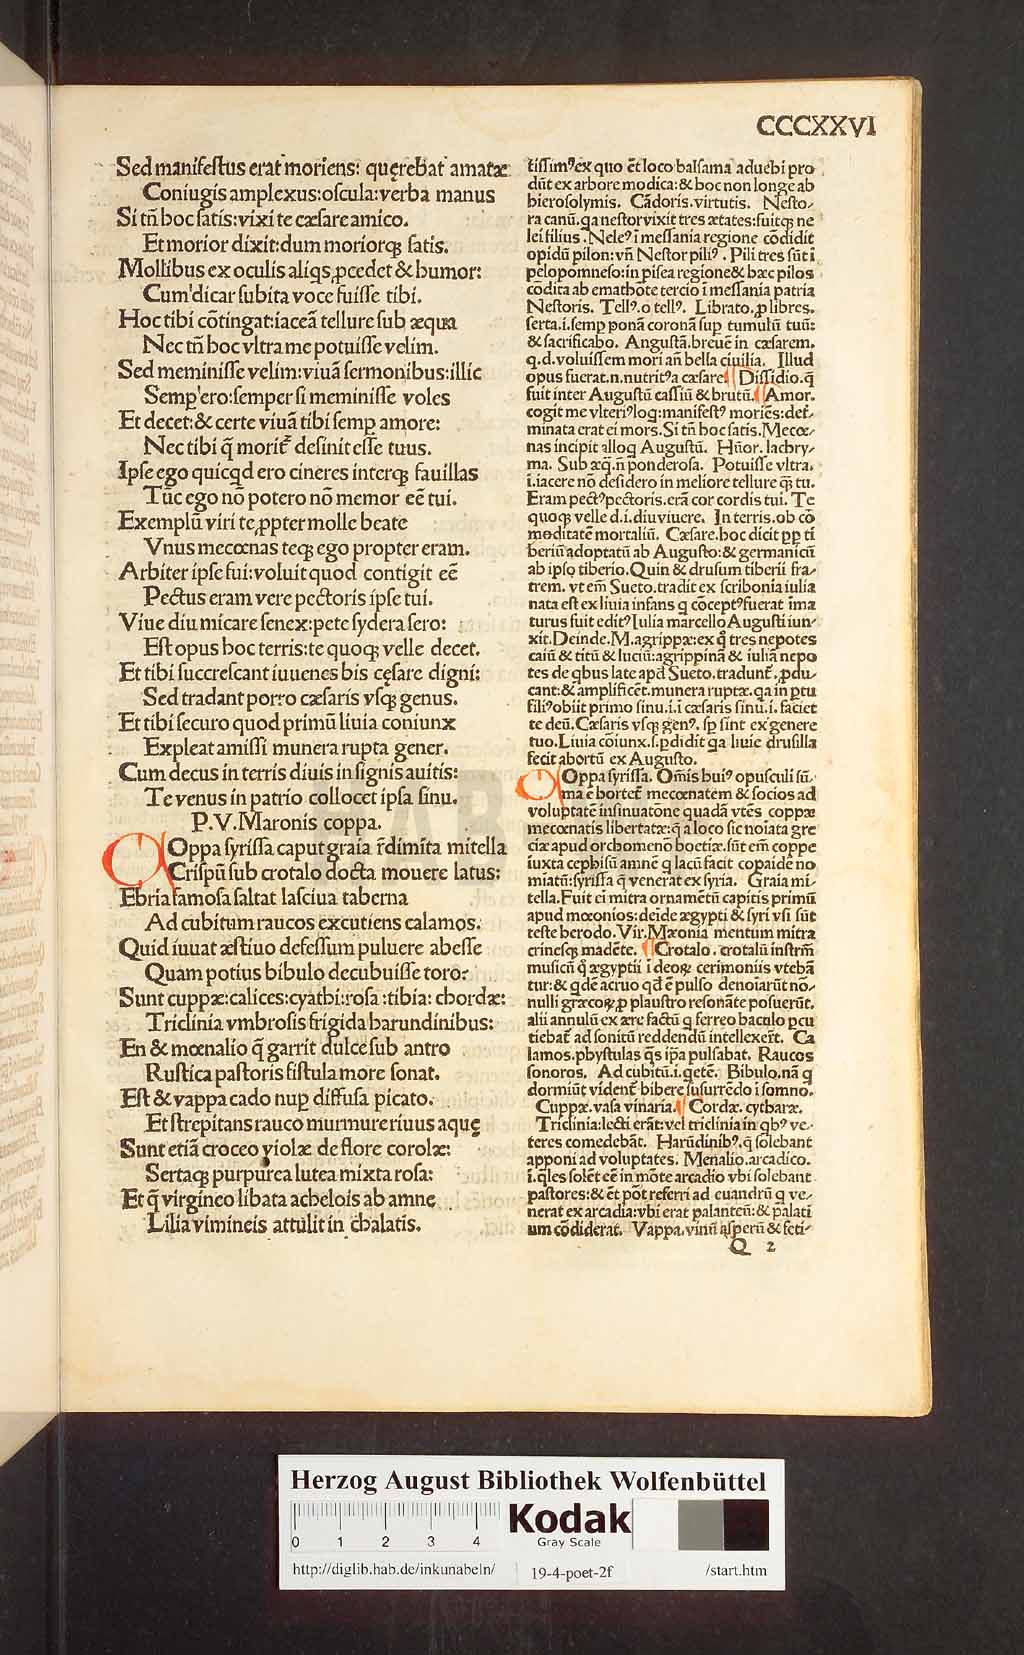 CCCXXVI
Sed manifestus erat moriens: quęrebat amatæ
Coniugis amplexus:oscula:verba manus
Si tñ hoc satis:vixi te cæsare amico.
Et morior dixit:dum moriorq̃ satis.
Mollibus ex oculis aliq̃s ꝓcedet & humor:
Cum dicar subita voce fuisse tibi.
Hoc tibi cõtingat:iaceã tellure sub æqua
Nec tñ hoc vltra me potuisse velim.
Sed meminisse velim:viuã sermonibus:illic
Semp ero:semper si meminisse voles
Et decet:& certe viuã tibi semp amore:
Nec tibi q̃ morit᷑ desinit esse tuus.
Ipse ego quicqd ero cineres interq̃ fauillas
Tũc ego nõ potero nõ memor eẽ tui.
Exemplũ viri te ꝓpter molle beate
Vnus mecœnas teq̃ ego propter eram.
Arbiter ipse fui:voluit quod contigit eẽ
Pectus eram vere pectoris ipse tui.
Viue diu mi care senex:pete sydera sero:
Est opus hoc terris:te quoq̃ velle decet.
Et tibi succrescant iuuenes bis cęsare digni:
Sed tradant porro cæsaris vsq̃ genus.
Et tibi securo quod primũ liuia coniunx
Expleat amissi munera rupta gener.
Cum decus in terris diuis in signis auitis:
Te venus in patrio collocet ipsa sinu.
P.V.Maronis coppa.
COppa syrissa caput graia r̃dimita mitella
Crispũ sub crotalo docta mouere latus:
Ebria famosa saltat lasciua taberna
Ad cubitum raucos excutiens calamos.
Quid iuuat æstiuo defessum puluere abesse
Quam potius bibulo decubuisse toro:
Sunt cuppæ:calices:cyathi:rosa :tibia: chordæ:
Triclinia vmbrosis frigida harundinibus:
En & mœnalio q̃ garrit dulce sub antro
Rustica pastoris fistula more sonat.
Est & vappa cado nup diffusa picato.
Et strepitans rauco murmure riuus aquę
Sunt etiã croceo violæ de flore corolæ:
Sertaq̃ purpurea lutea mixta rosa:
Et q̃ virgineo libata achelois ab amne
Lilia vimineis attulit in chalatis.
tissimꝰ ex quo ẽt loco balsama aduehi pro
dũt ex arbore modica:& hoc non longe ab
hierosolymis. Cãdoris.virtutis. Nesto-
ra canũ.qa nestor vixit tres ætates:fuitq̃ ne
lei filius. Neleꝰ ĩ messania regione cõdidit
opidũ pilon:vñ Nestor piliꝰ. Pili tres sũt ĩ
peloponneso:in pisea regione& hæc pilos
cõdita ab emathote tercio ĩ messania patria
Nestoris. Tellꝰ.o tellꝰ. Librato.ꝓ libres.
serta.i.semp ponã coronã sup tumulũ tuũ:
& sacrificabo. Angustã.breuẽ in cæsarem.
q.d.voluissem mori añ bella ciuilia. Illud
opus fuerat.n.nutritꝰ a cæsare Dissidio.q̃
fuit inter Augustũ cassiũ & brutũ. Amor.
cogit me vlteriꝰ loq:manifestꝰ moriẽs:det᷑-
minata erat ei mors.Si tñ hoc satis.Mecœ-
nas incipit alloq Augustũ. Hũor.lachry-
ma. Sub æq̃.ñ ponderosa. Potuisse vltra.
i.iacere nõ desidero in meliore tellure q̃ʒ tu.
Eram pectꝰ pectoris.erã cor cordis tui. Te
quoq̃ velle d.i.diu viuere. In terris.ob cõ
moditatẽ mortaliũ. Cæsare.hoc dicit ꝓp̱ ti
beriũ adoptatũ ab Augusto:& germanicũ
ab ipso tiberio.Quin & drusum tiberii fra-
trem. vt em̃ Sueto.tradit ex scribonia iulia
nata est ex liuia infans q cõceptꝰ fuerat ĩma
turus fuit editꝰ Iulia marcello Augusti iun-
xit.Deinde.M.agrippæ:ex q̃ tres nepotes
caiũ & titũ & luciũ:agrippinã & iuliã nepo
tes de qbus late apd Sueto.tradunt.ꝓdu-
cant:& amplificẽt.munera ruptæ.qa in ptu
filiꝰ obiit primo sinu.i.ĩ cæsaris sinu.i. faciet
te deũ.Cæsaris vsq̃ genꝰ. sp sint ex genere
tuo.Liuia cõiunx.s.pdidit qa liuie drusilla
fecit abortũ ex Augusto.
COppa syrissa. Om̃is huiꝰ opusculi sũ-
ma e hortet᷑ mecœnatem & socios ad
voluptatẽ insinuatone quadã vtẽs coppæ
mecœnatis libertatæ:q̃ a loco sic noĩata gre
ciæ apud orchomenõ boetiæ.sũt em̃ coppe
iuxta cephisũ amnẽ q lacũ facit copaide no
miatũ:syrissa q̃ venerat ex syria. Graia mi-
tella.Fuit ei mitra ornametũ capitis primũ
apud mœonios:deide ægypti & syri vsi sũt
teste herodo.Vir.Mæonia mentum mitra
crinesq̃ madẽte. Crotalo. crotalũ instrm̃
musicũ q̃ ægyptii ĩ deoꝝ cerimoniis vtebã
tur:& qdẽ acruo qd ẽ pulso denoĩarũt nõ-
nulli græcoꝝ.ꝓ plaustro resonãte posuerũt.
alii annulũ ex ære factũ q ferreo baculo pcu
tiebat᷑ ad sonitũ reddendũ intellexerũt. Ca
lamos.phystulas q̃s ip̃a pulsabat. Raucos
sonoros. Ad cubitũ.i.qetẽ. Bibulo.nã q
dormiũt vident᷑ bibere susurrẽdo ĩ somno.
Cuppæ.vasa vinaria. Cordæ. cytharæ.
Triclinia:lecti erãt:vel triclinia in qbꝰ ve-
teres comedebãt. Harũdinibꝰ.q̃ solebant
apponi ad voluptates. Menalio.arcadico.
i.q̃les solẽt eẽ in mõte arcadio vbi solebant
pastores:& ẽt põt referri ad euandrũ q ve-
nerat ex arcadia:vbi erat palanteũ:& palati
um cõdiderat. Vappa.vinũ asperũ & feti-
Q 2
Herzog August Bibliothek Wolfenbüttel
0 1 2 3 4
Kodak
Gray Scale
http://diglib.hab.de/inkunabeln/ 19-4-poet-2f /start.htm
HAB